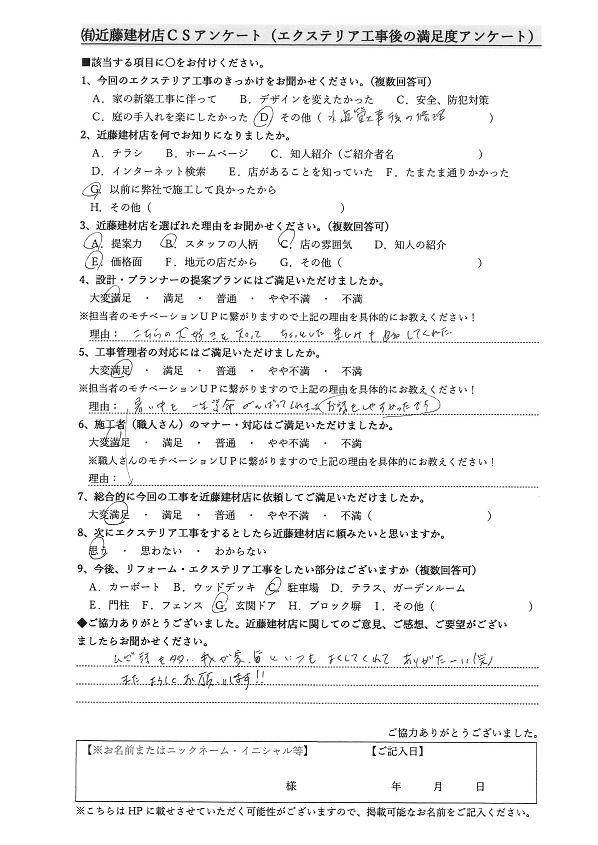 ㈲近藤建材店ＣＳアンケート（エクステリア工事後の満足度アンケート）
■該当する項目に〇をお付けください。
1、今回のエクステリア工事のきっかけをお聞かせください。（複数回答可）
A．家の新築工事に伴って　B．デザインを変えたかった　C．安全、防犯対策
C．庭の手入れを楽にしたかった　D．その他（水道管工事後の修理　）
2、近藤建材店を何でお知りになりましたか。
A．チラシ　B．ホームページ　C．知人紹介（ご紹介者名　）
D．インターネット検索　E．店があることを知っていた　F．たまたま通りかかった
G．以前に弊社で施工して良かったから
H．その他（　）
3、近藤建材店を選ばれた理由をお聞かせください。（複数回答可）
A．提案力　B．スタッフの人柄　C．店の雰囲気　D．知人の紹介
E．価格面　F．地元の店だから　G．その他（　）
4、設計・プランナーの提案プランにはご満足いただけましたか。
大変満足　・　満足　・　普通　・　やや不満　・　不満
※担当者のモチベーションＵＰに繋がりますので上記の理由を具体的にお教えください！
理由：こちらの大好きを知って ちょっとした楽しみも加えてくれた
5、工事管理者の対応にはご満足いただけましたか。
大変満足　・　満足　・　普通　・　やや不満　・　不満
※担当者のモチベーションＵＰに繋がりますので上記の理由を具体的にお教えください！
理由：暑い中を 一生懸命 がんばってくれました お話もしやすかったです
6、施工者（職人さん）のマナー・対応はご満足いただけましたか。
大変満足　・　満足　・　普通　・　やや不満　・　不満
※職人さんのモチベーションＵＰに繋がりますので上記の理由を具体的にお教えください！
理由：
7、総合的に今回の工事を近藤建材店に依頼してご満足いただけましたか。
大変満足　・　満足　・　普通　・　やや不満　・　不満（　）
8、次にエクステリア工事をするとしたら近藤建材店に頼みたいと思いますか。
思う　・　思わない　・　わからない
9、今後、リフォーム・エクステリア工事をしたい部分はございますか（複数回答可）
A．カーポート　B．ウッドデッキ　C．駐車場　D．テラス、ガーデンルーム
E．門柱　F．フェンス　G．玄関ドア　H．ブロック塀　I．その他（　）
◆ご協力ありがとうございました。近藤建材店に関してのご意見、ご感想、ご要望がござい
ましたらお聞かせください。
多い 我が家 皆さんいつも よくしてくれて ありがたーい（笑）
また よろしくお願いします!!
ご協力ありがとうございました。
【※お名前またはニックネーム・イニシャル等】　【ご記入日】
様　年　月　日
※こちらはHPに載せさせていただく可能性がございますので、掲載可能なお名前をご記入ください。